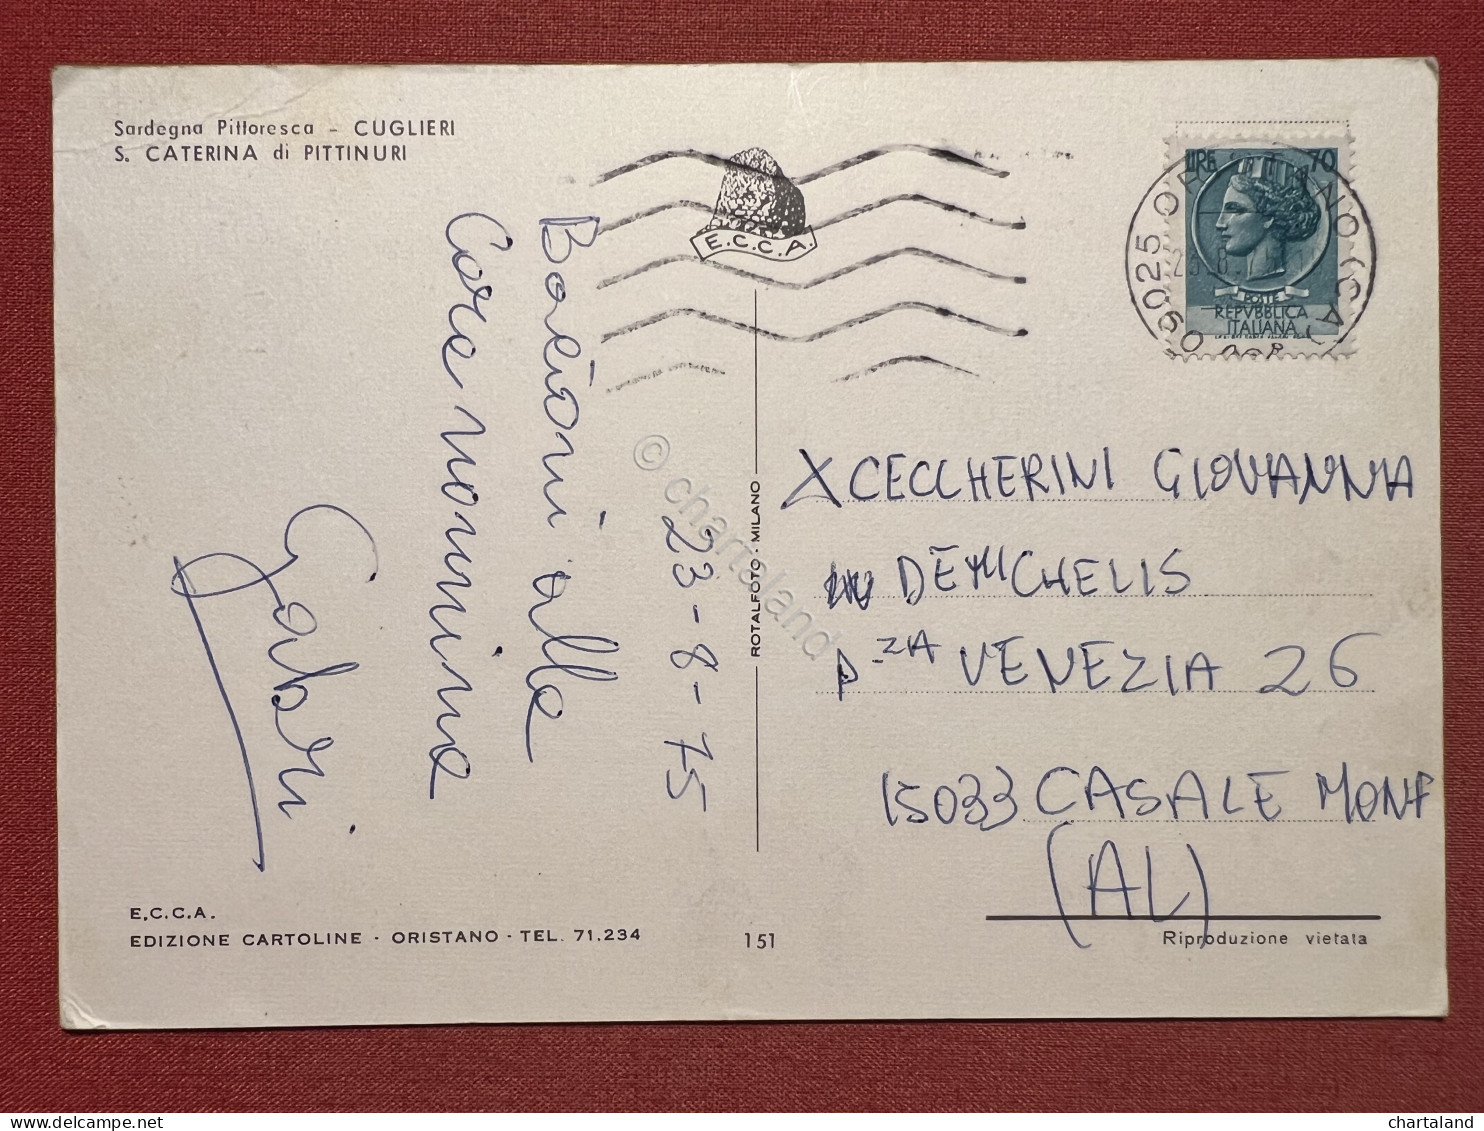 Sardegna Pittoresca - CUGLIERI
S. CATERINA di PITTINURI
E.C.C.A.
LIRE 70
POSTE
REPVBBLICA
ITALIANA
09025
23-8-75
Bacioni alle
Care nonnine
Gabri
ROTALFOTO - MILANO
X CECCHERINI GIOVANNA
IN DEMICHELIS
P.ZA VENEZIA 26
15033 CASALE MONF
(AL)
E.C.C.A.
EDIZIONE CARTOLINE - ORISTANO - TEL. 71.234
151
Riproduzione vietata
© chartaland
delcampe.net
chartaland